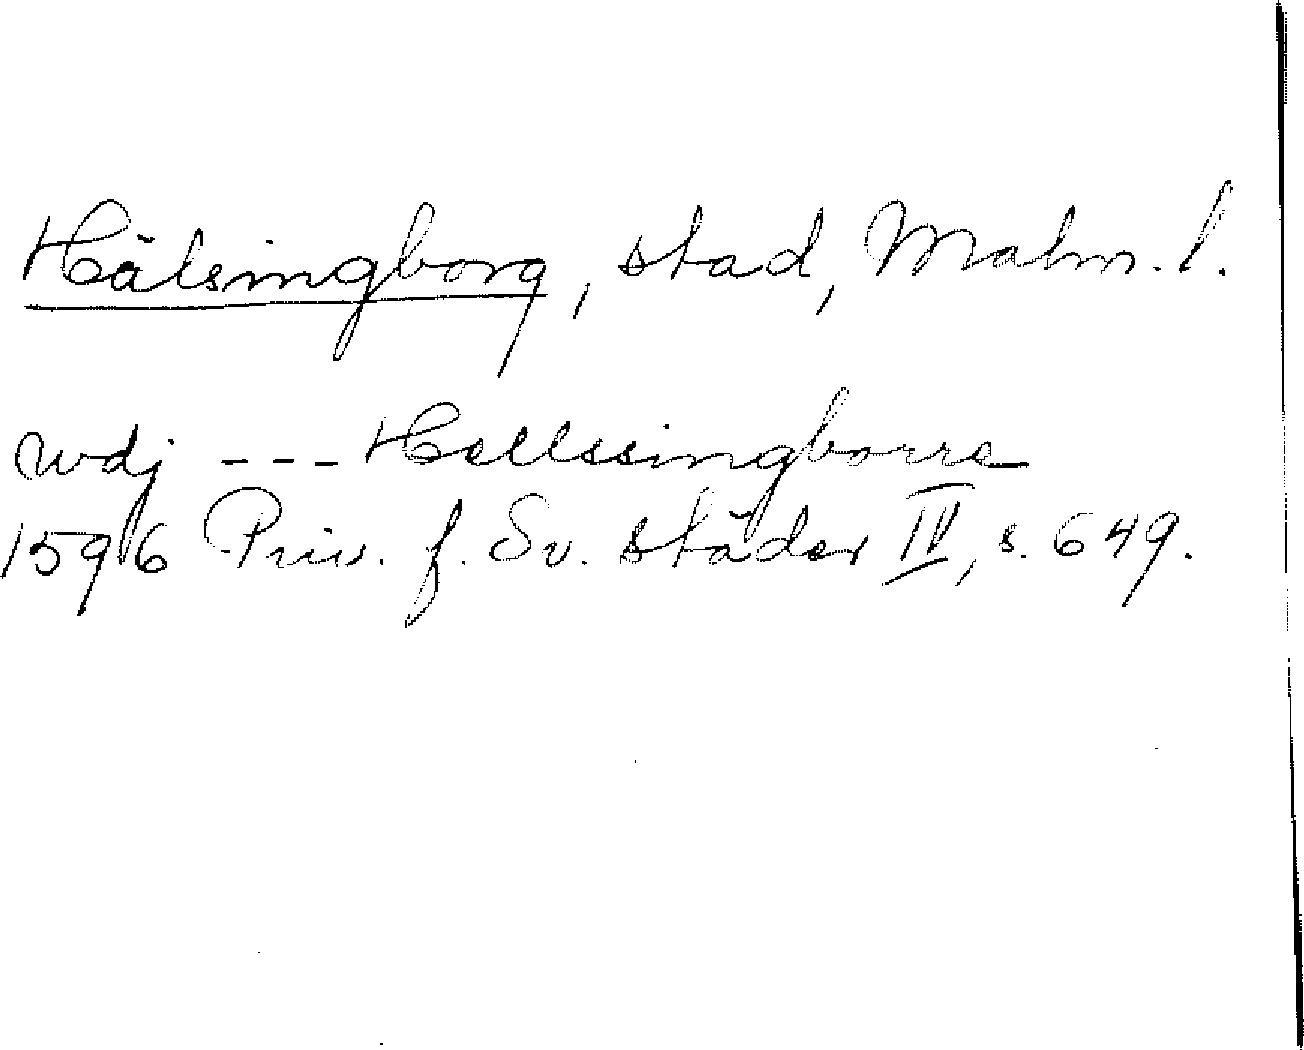 Hälsingborg, stad, Malm. l.
wdj --- Hellssingborre
1596 Priv. f. Sv. städer IV, s. 649.